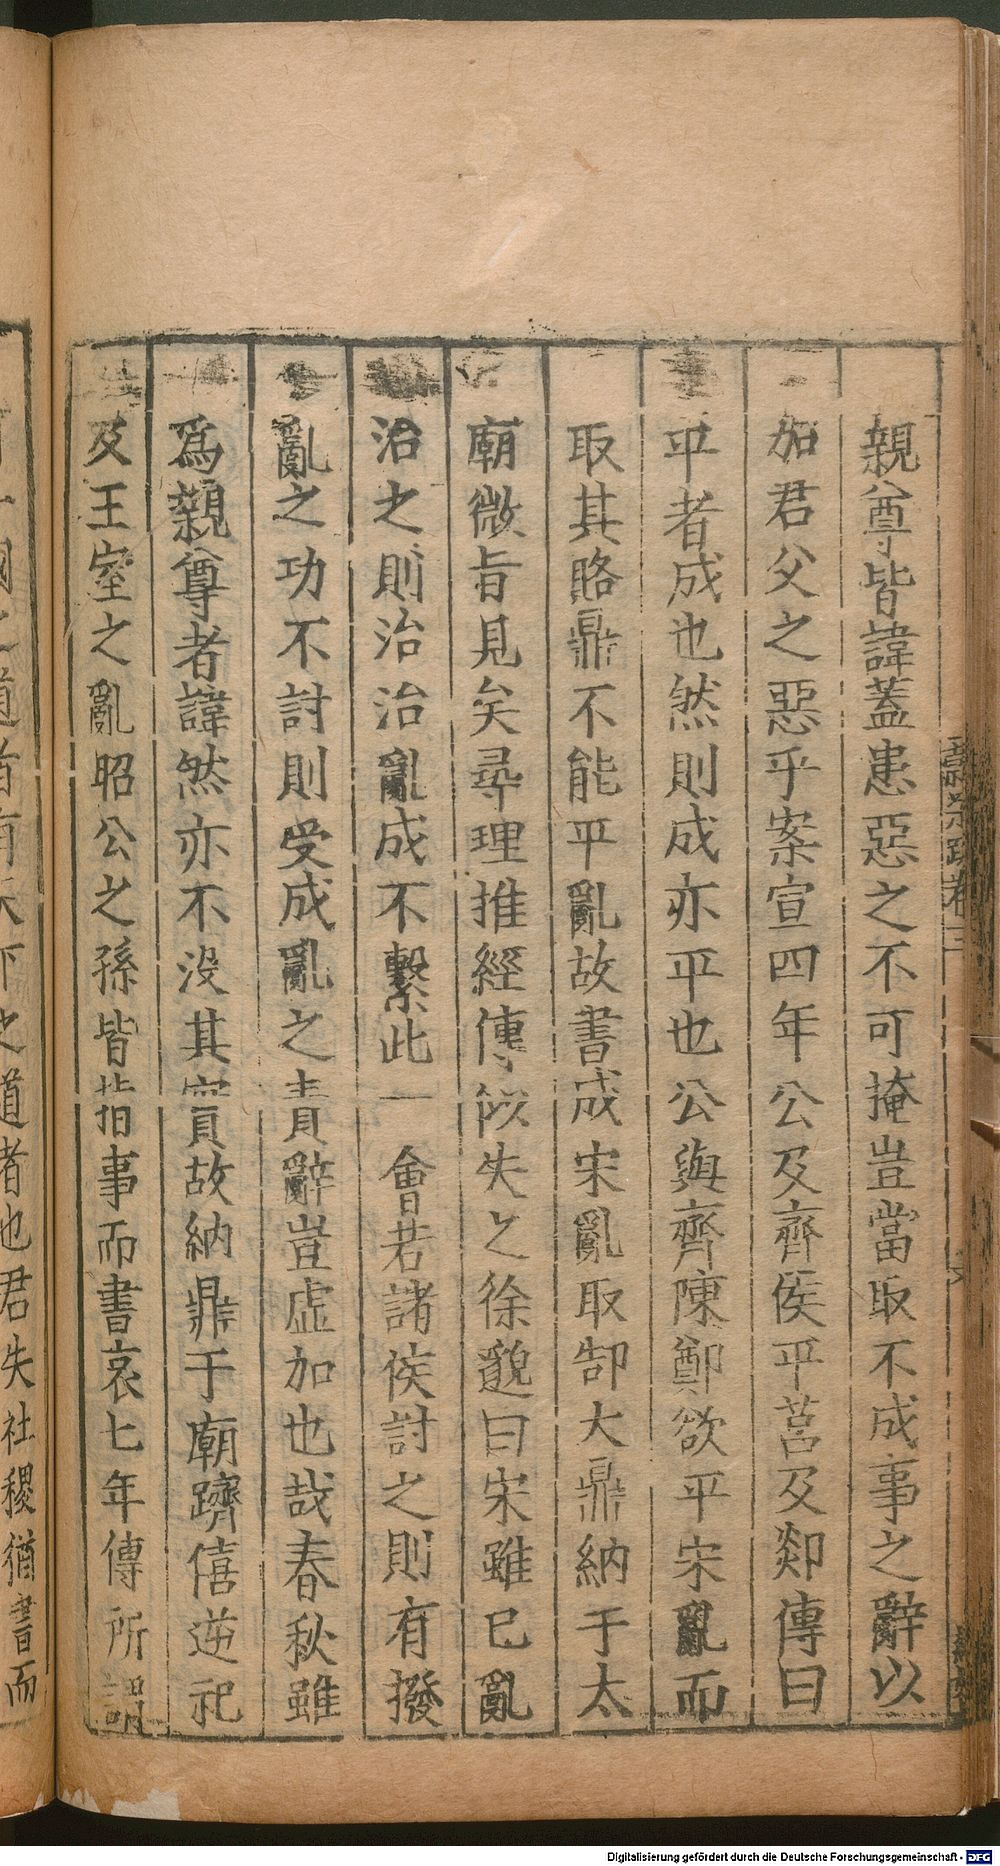 親尊皆諱蓋患惡之不可掩豈當取不成事之辭以
加君父之惡乎案宣四年公及齊侯平莒及郯傳曰
平者成也然則成亦平也公與齊陳鄭欲平宋亂而
取其賂鼎不能平亂故書成宋亂取郜大鼎納于太
廟微旨見矣尋理推經傳似失之徐邈曰宋雖已亂
治之則治治亂成不繫此一會若諸侯討之則有撥
亂之功不討則受成亂之責辭豈虛加也哉春秋雖
爲親尊者諱然亦不沒其實故納鼎于廟躋僖逆祀
及王室之亂昭公之孫皆指事而書哀七年傳所謂
國之道者有天下之道者也君失社稷猶書而
Digitalisierung gefördert durch die Deutsche Forschungsgemeinschaft - DFG